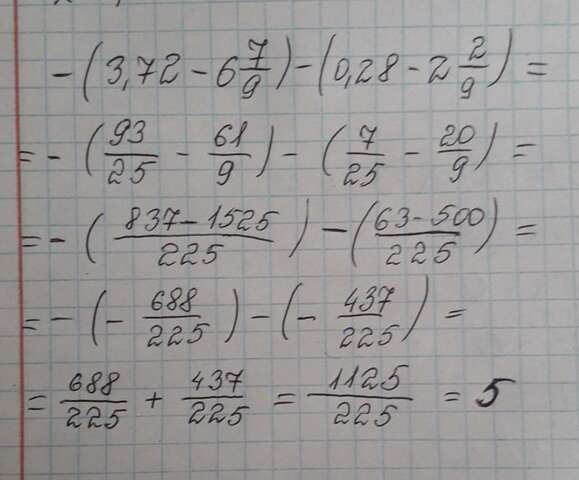 - (3,72 - 6 7/9) - (0,28 - 2 2/9) =
= - (93/25 - 61/9) - (7/25 - 20/9) =
= - ((837 - 1525)/225) - ((63 - 500)/225) =
= - (- 688/225) - (- 437/225) =
= 688/225 + 437/225 = 1125/225 = 5